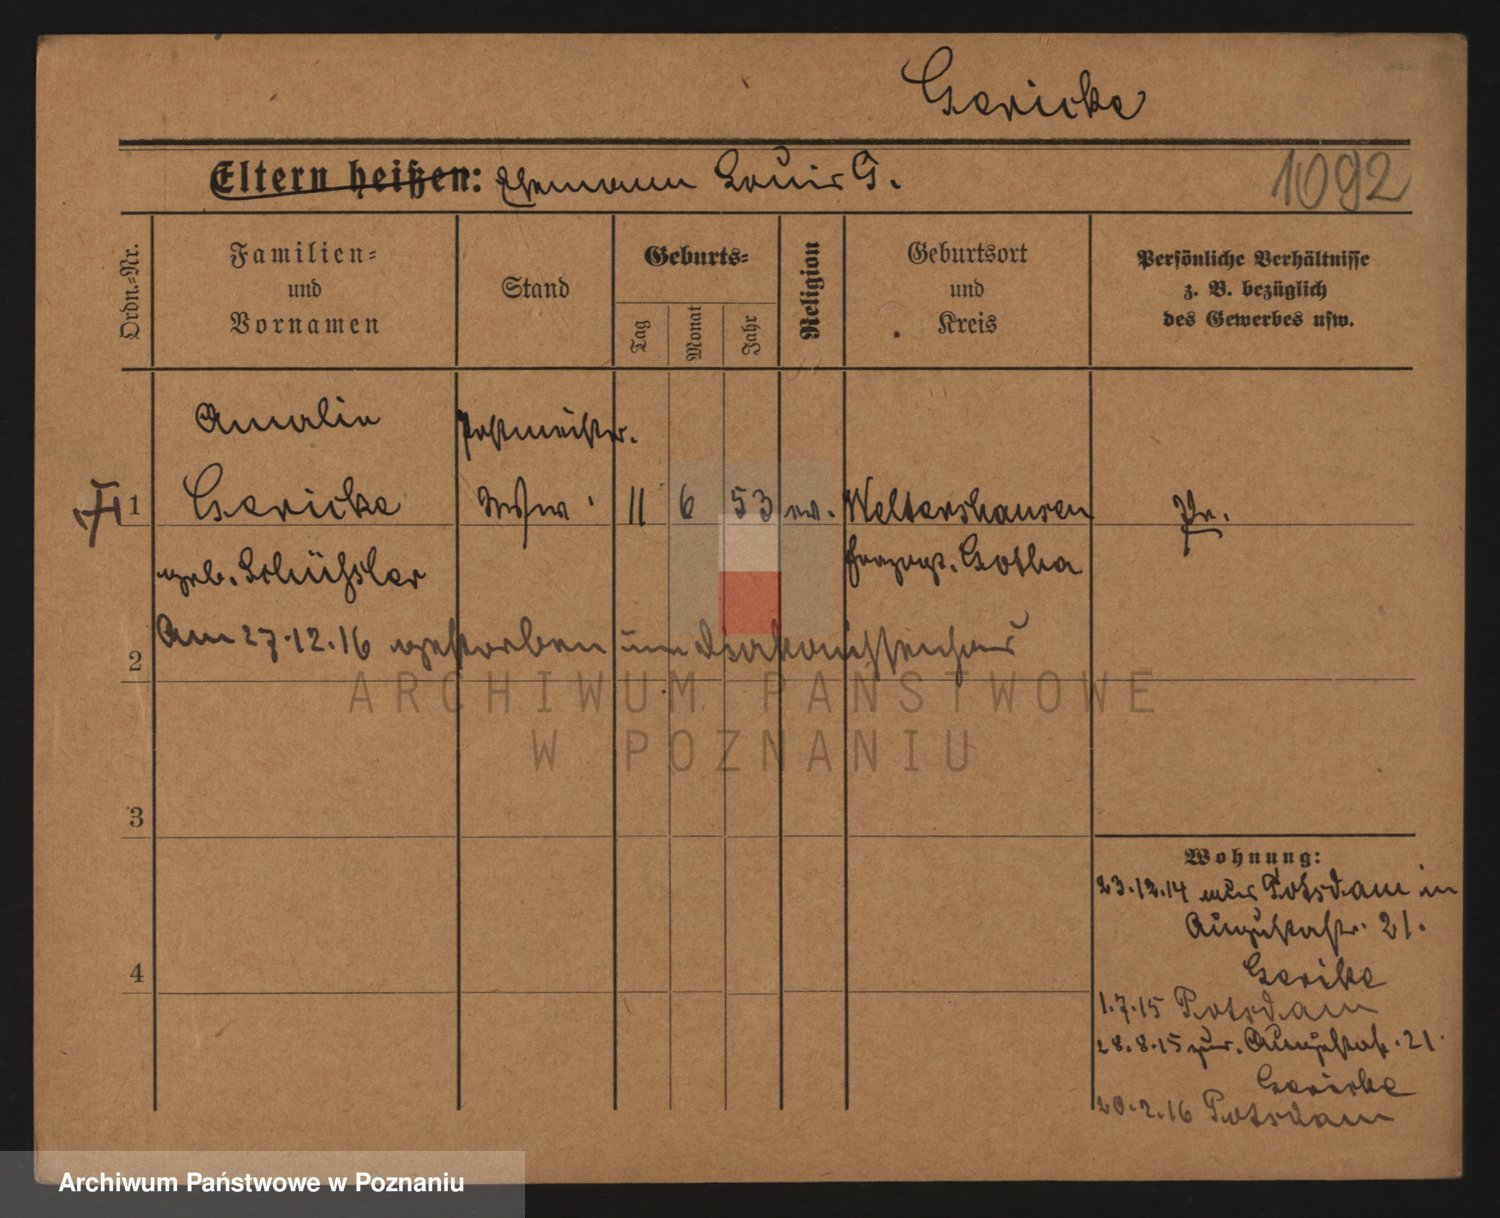 Gericke
Eltern heißen: Ehemann Louis G.
1092
Ordn.-Nr.
Familien-
und
Vornamen
Stand
Geburts-
Tag
Monat
Jahr
Religion
Geburtsort
und
Kreis
Persönliche Verhältnisse
z. B. bezüglich
des Gewerbes usw.
Amalie
Postmeister.
1 Gericke Wtw. 11 6 53 ev. Waltershausen Pr.
geb. Schüssler Herzogt. Gotha
Am 27.12.16 gestorben im Diakonissenhaus
2
ARCHIWUM PAŃSTWOWE
W POZNANIU
3
Wohnung:
23.12.14 aus Potsdam in
Augustastr. 21.
Gerike
4
1.7.15 Potsdam
28.8.15 zur. Augustastr. 21.
Gericke
20.2.16 Potsdam
Archiwum Państwowe w Poznaniu